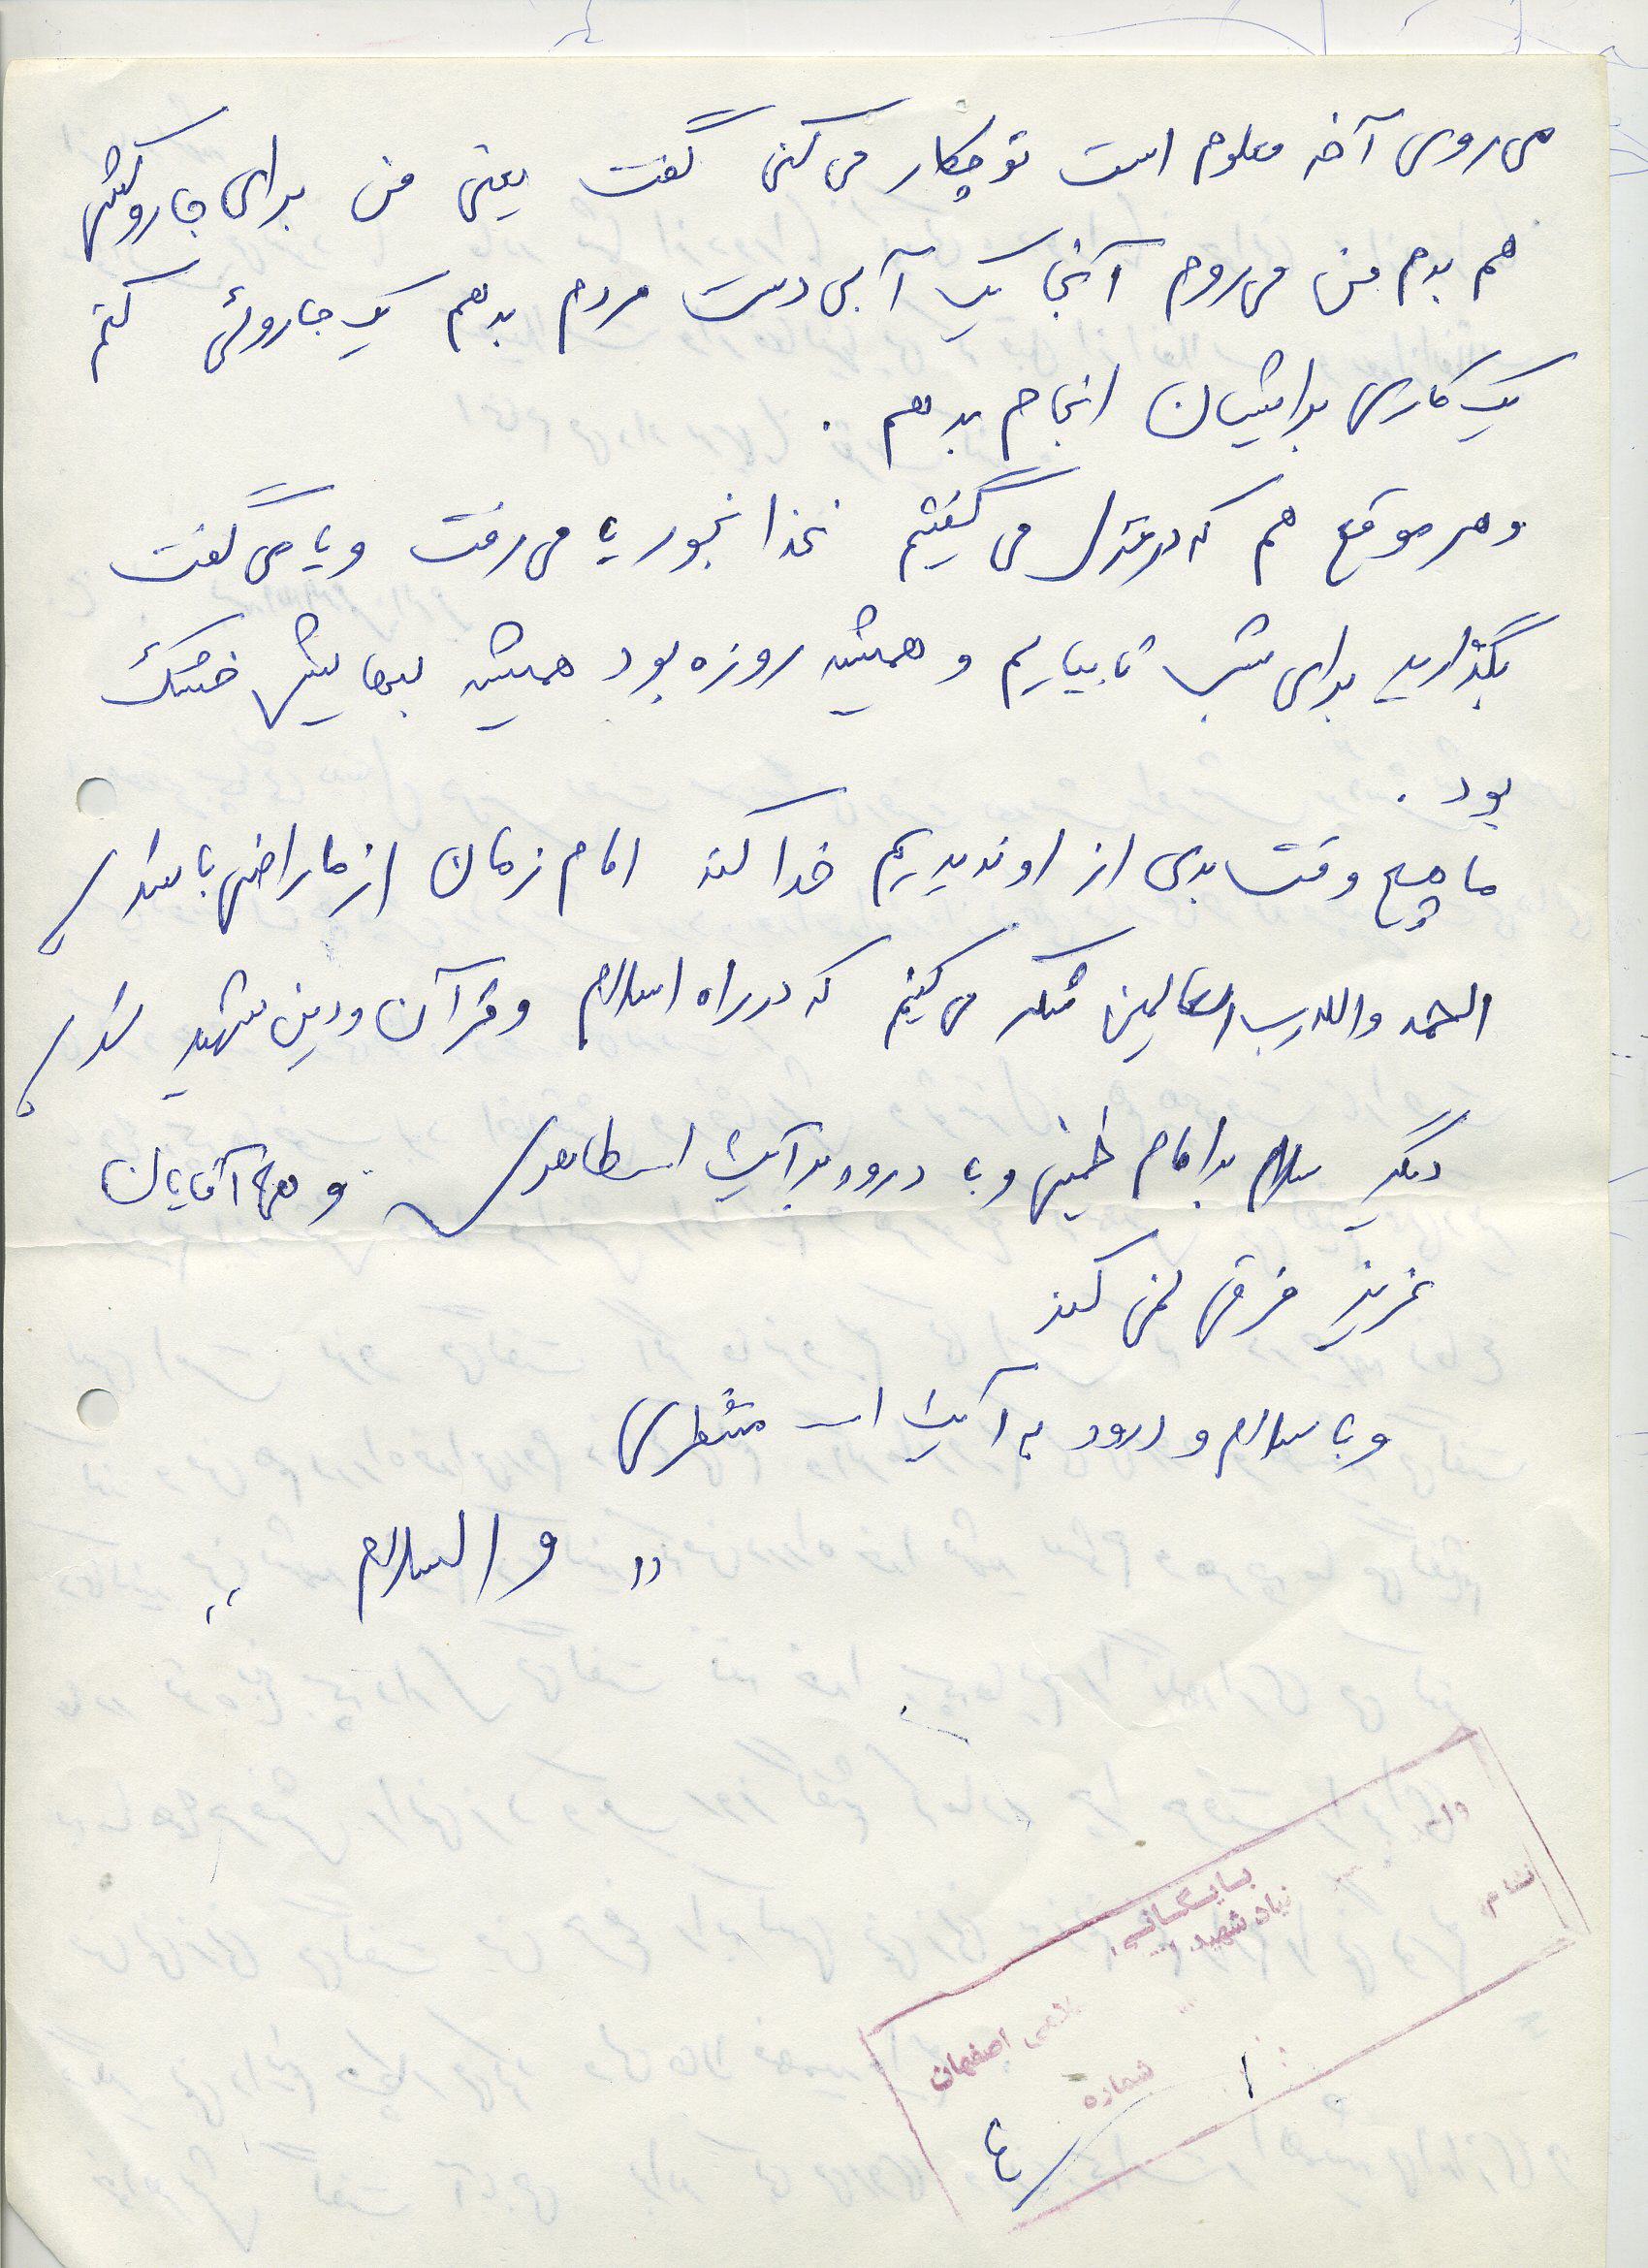 می روی آخه معلوم است تو چکار می کنی گفت یعنی من برای جاروکشی
هم بدم من می روم آنجا یک آبی دست مردم بدهم یک جاروئی کنم
یک کاری برایشان انجام بدهم .
و هر موقع هم که در منزل می گفتیم غذا بخور یا می رفت و یا می گفت
بگذارید برای شب تا بیایم و همیشه روزه بود همیشه لبهایش خشک
بود .
ما هیچ وقت بدی از او ندیدیم خدا کند امام زمان از ما راضی باشد
الحمد والله رب العالمین شکر می کنیم که در راه اسلام و قرآن و دین شهید شد
دیگر سلام بر امام خمینی و با درود بر آیت الله طاهری و همه آقایان
عزیز فرقی نمی کند
و با سلام و درود به آیت الله منتظری
" والسلام "
بایگانی
بنیاد شهید
اسلامی اصفهان
شماره
۱
۴